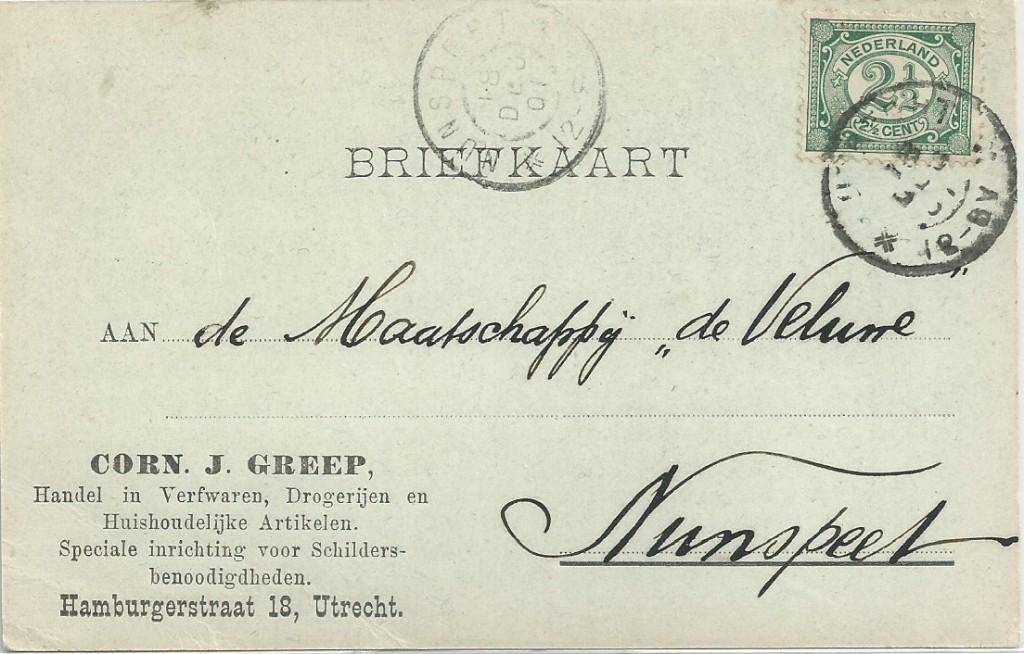 NEDERLAND
2½
2½ CENT
18 DEC 01
BRIEFKAART
12-8V
AAN de Maatschappij „de Veluwe”
Nunspeet
CORN. J. GREEP,
Handel in Verfwaren, Drogerijen en
Huishoudelijke Artikelen.
Speciale inrichting voor Schilders-
benoodigdheden.
Hamburgerstraat 18, Utrecht.